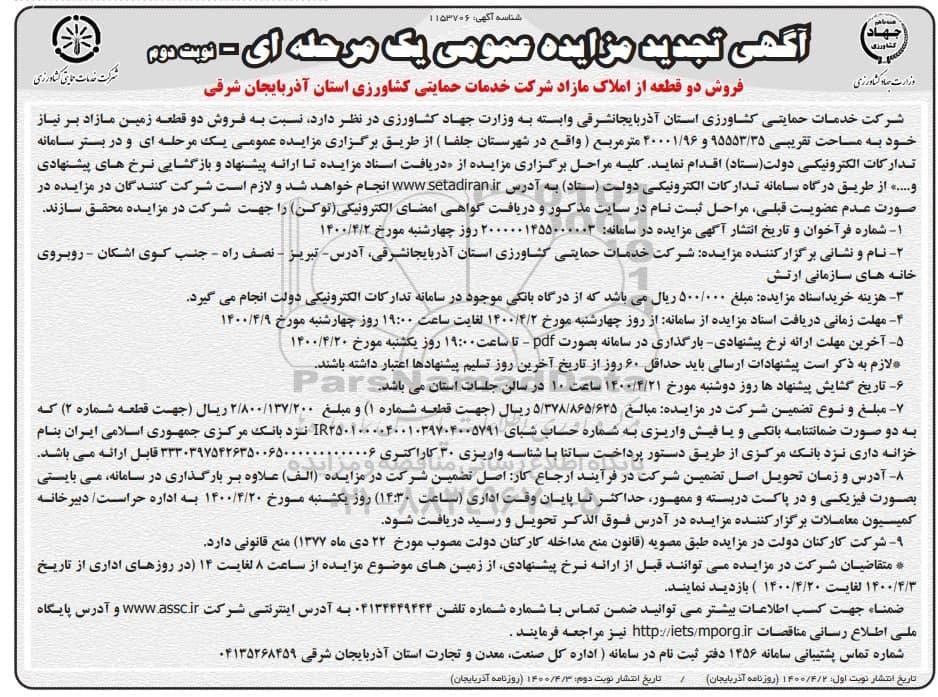 شناسه آگهی: ۱۱۵۳۷۰۶
آگهی تجدید مزایده عمومی یک مرحله ای - نوبت دوم
جهاد کشاورزی
وزارت جهاد کشاورزی
شرکت خدمات حمایتی کشاورزی
فروش دو قطعه از املاک مازاد شرکت خدمات حمایتی کشاورزی استان آذربایجان شرقی
شرکت خدمات حمایتی کشاورزی استان آذربایجانشرقی وابسته به وزارت جهاد کشاورزی در نظر دارد، نسبت به فروش دو قطعه زمین مازاد بر نیاز
خود به مساحت تقریبی ۹۵۵۵۳/۳۵ و ۴۰۰۰۱/۹۶ مترمربع ( واقع در شهرستان جلفا ) از طریق برگزاری مزایده عمومی یک مرحله ای و در بستر سامانه
تدارکات الکترونیکی دولت(ستاد) اقدام نماید. کلیه مراحل برگزاری مزایده از «دریافت اسناد مزایده تا ارائه پیشنهاد و بازگشایی نرخ های پیشنهادی
و....» از طریق درگاه سامانه تدارکات الکترونیکی دولت (ستاد) به آدرس www.setadiran.ir انجام خواهد شد و لازم است شرکت کنندگان در مزایده در
صورت عدم عضویت قبلی، مراحل ثبت نام در سایت مذکور و دریافت گواهی امضای الکترونیکی(توکن) را جهت شرکت در مزایده محقق سازند.
۱- شماره فرآخوان و تاریخ انتشار آگهی مزایده در سامانه: ۲۰۰۰۰۰۱۴۵۵۰۰۰۰۰۳ روز چهارشنبه مورخ ۱۴۰۰/۴/۲
۲- نام و نشانی برگزارکننده مزایده: شرکت خدمات حمایتی کشاورزی استان آذربایجانشرقی، آدرس- تبریز - نصف راه - جنب کوی اشکان - روبروی
خانه های سازمانی ارتش
۳- هزینه خریداسناد مزایده: مبلغ ۵۰۰/۰۰۰ ریال می باشد که از درگاه بانکی موجود در سامانه تدارکات الکترونیکی دولت انجام می گیرد.
۴- مهلت زمانی دریافت اسناد مزایده از سامانه: از روز چهارشنبه مورخ ۱۴۰۰/۴/۲ لغایت ساعت ۱۹:۰۰ روز چهارشنبه مورخ ۱۴۰۰/۴/۹
۵- آخرین مهلت ارائه نرخ پیشنهادی- بارگذاری در سامانه بصورت pdf - تا ساعت۱۹:۰۰ روز یکشنبه مورخ ۱۴۰۰/۴/۲۰
*لازم به ذکر است پیشنهادات ارسالی باید حداقل ۶۰ روز از تاریخ آخرین روز تسلیم پیشنهادها اعتبار داشته باشند.
۶- تاریخ گشایش پیشنهاد ها روز دوشنبه مورخ ۱۴۰۰/۴/۲۱ ساعت ۱۰ در سالن جلسات استان می باشد.
۷- مبلغ و نوع تضمین شرکت در مزایده: مبالغ ۵/۳۷۸/۸۶۵/۶۲۵ ریال (جهت قطعه شماره ۱) و مبلغ ۲/۸۰۰/۱۳۷/۲۰۰ ریال (جهت قطعه شماره ۲) که
به دو صورت ضمانتنامه بانکی و یا فیش واریزی به شماره حساب شبای IR۲۵۰۱۰۰۰۰۴۰۰۱۰۳۹۷۰۴۰۰۵۷۹۱ نزد بانک مرکزی جمهوری اسلامی ایران بنام
خزانه داری نزد بانک مرکزی از طریق دستور پرداخت ساتنا با شناسه واریزی ۳۰ کاراکتری ۳۳۳۰۳۹۷۵۴۲۶۳۵۰۰۶۵۰۰۰۰۰۰۰۰۰۰۰۰۶ قابل ارائه می باشد.
۸- آدرس و زمان تحویل اصل تضمین شرکت در فرآیند ارجاع کار: اصل تضمین شرکت در مزایده (الف) علاوه بر بارگذاری در سامانه، می بایستی
بصورت فیزیکی و در پاکت دربسته و ممهور، حداکثر تا پایان وقت اداری (ساعت ۱۴:۳۰) روز یکشنبه مورخ ۱۴۰۰/۴/۲۰ به اداره حراست/ دبیرخانه
کمیسیون معاملات برگزارکننده مزایده در آدرس فوق الذکر تحویل و رسید دریافت شود.
۹- شرکت کارکنان دولت در مزایده طبق مصوبه (قانون منع مداخله کارکنان دولت مصوب مورخ ۲۲ دی ماه ۱۳۷۷) منع قانونی دارد.
* متقاضیان شرکت در مزایده می توانند قبل از ارائه نرخ پیشنهادی، از زمین های موضوع مزایده از ساعت ۸ لغایت ۱۴ (در روزهای اداری از تاریخ
۱۴۰۰/۴/۳ لغایت ۱۴۰۰/۴/۲۰ ) بازدید نمایند.
ضمناً« جهت کسب اطلاعات بیشتر می توانید ضمن تماس با شماره شماره تلفن ۰۴۱۳۴۴۴۹۴۴۴ به آدرس اینترنتی شرکت www.assc.ir و آدرس پایگاه
ملی اطلاع رسانی مناقصات http://iets/mporg.ir نیز مراجعه فرمایند .
شماره تماس پشتیبانی سامانه ۱۴۵۶ دفتر ثبت نام در سامانه ( اداره کل صنعت، معدن و تجارت استان آذربایجان شرقی ۰۴۱۳۵۲۶۸۴۵۹
تاریخ انتشار نوبت اول: ۱۴۰۰/۴/۲ (روزنامه آذربایجان) / تاریخ انتشار نوبت دوم: ۱۴۰۰/۴/۳ (روزنامه آذربایجان)
ParsNamadData
پایگاه اطلاع رسانی مناقصه و مزایده